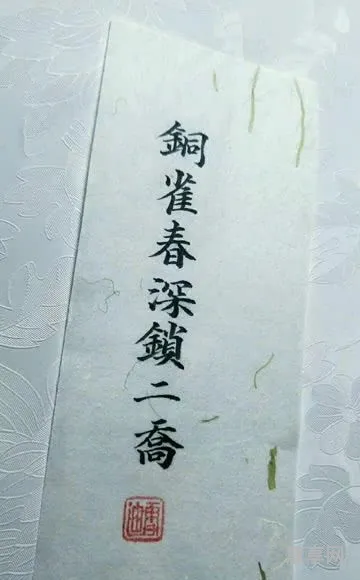 銅雀春深鎖二喬